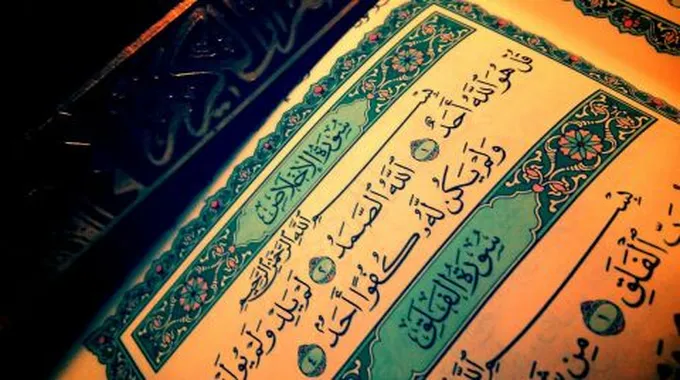 سُورَةُ الْإِخْلَاصِ
بِسْمِ اللَّهِ الرَّحْمَٰنِ الرَّحِيمِ
قُلْ هُوَ اللَّهُ أَحَدٌ ١ اللَّهُ الصَّمَدُ ٢ لَمْ يَلِدْ وَلَمْ
وَلَمْ يَكُن لَّهُ كُفُوًا أَحَدٌ ٤
سُورَةُ الْفَلَقِ
بِسْمِ اللَّهِ
الْفَلَقِ ١ مِن